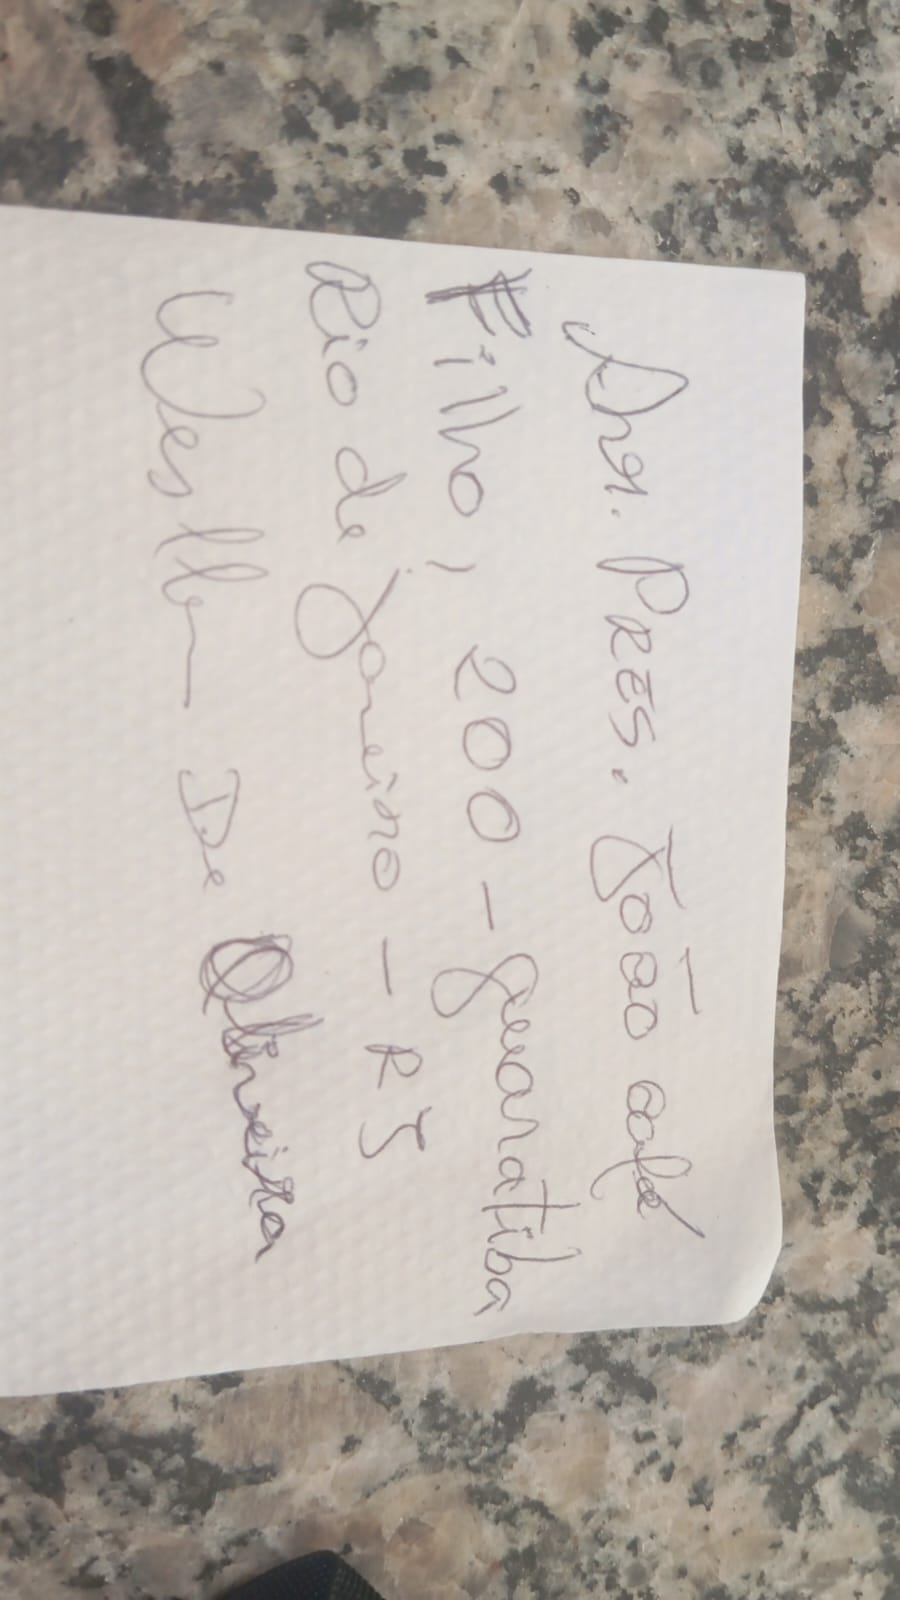 Av. PRES. João café
Filho, 200 - guaratiba
Rio de janeiro - RJ
De Oliveira